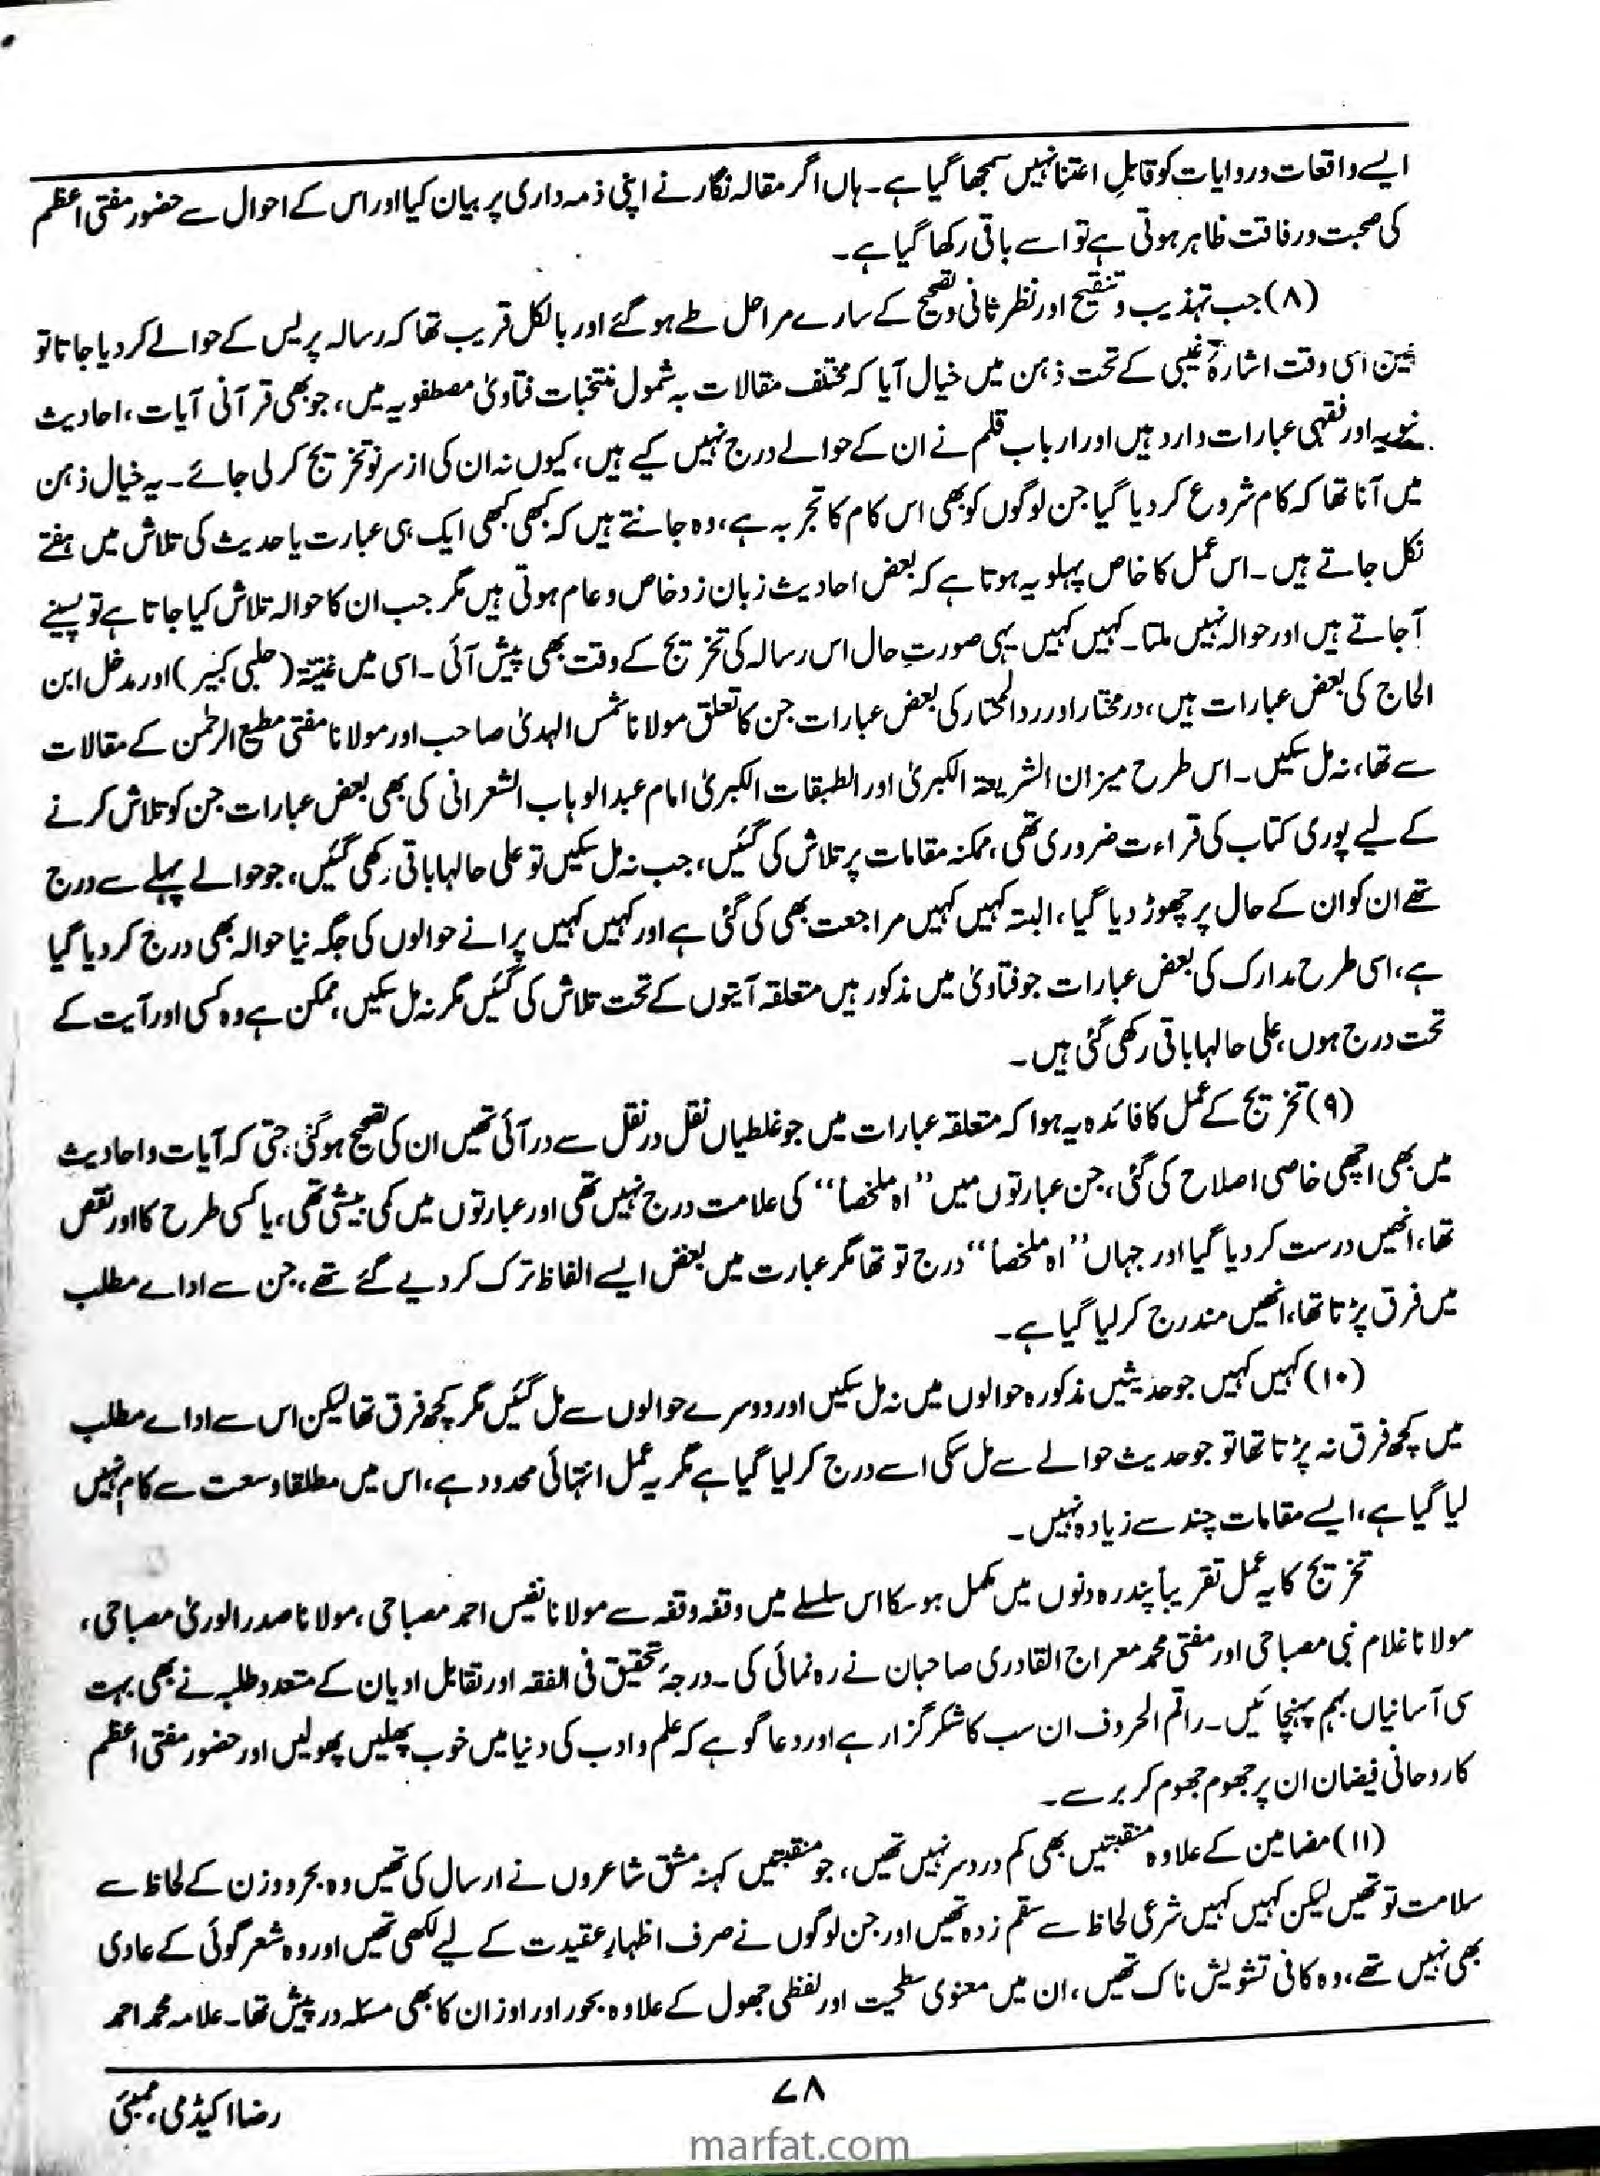 ایسے واقعات و روایات کو قابلِ اعتنا نہیں سمجھا گیا ہے۔ ہاں اگر مقالہ نگار نے اپنی ذمہ داری پر بیان کیا اور اس کے احوال سے حضور مفتی اعظم
کی صحبت و رفاقت ظاہر ہوتی ہے تو اسے باقی رکھا گیا ہے۔
(۸) جب تہذیب و تنقیح اور نظر ثانی و تصحیح کے سارے مراحل طے ہو گئے اور بالکل قریب تھا کہ رسالہ پریس کے حوالے کر دیا جاتا تو
عین اسی وقت اشارۂ غیبی کے تحت ذہن میں خیال آیا کہ مختلف مقالات بہ شمول منتخبات فتاویٰ مصطفویہ میں، جو بھی قرآنی آیات، احادیث
نبویہ اور فقہی عبارات وارد ہیں اور ارباب قلم نے ان کے حوالے درج نہیں کیے ہیں، کیوں نہ ان کی از سر نو تخریج کر لی جائے۔ یہ خیال ذہن
میں آنا تھا کہ کام شروع کر دیا گیا جن لوگوں کو بھی اس کام کا تجربہ ہے، وہ جانتے ہیں کہ کبھی کبھی ایک ہی عبارت یا حدیث کی تلاش میں ہفتے
نکل جاتے ہیں۔ اس عمل کا خاص پہلو یہ ہوتا ہے کہ بعض احادیث زبان زد خاص و عام ہوتی ہیں مگر جب ان کا حوالہ تلاش کیا جاتا ہے تو پسینے
آ جاتے ہیں اور حوالہ نہیں ملتا۔ کہیں کہیں یہی صورتِ حال اس رسالہ کی تخریج کے وقت بھی پیش آئی۔ اسی میں غنیۃ (حلبی کبیر) اور مدخل ابن
الحاج کی بعض عبارات ہیں، درمختار اور ردالمحتار کی بعض عبارات جن کا تعلق مولانا شمس الہدیٰ صاحب اور مولانا مفتی مطیع الرحمٰن کے مقالات
سے تھا، نہ مل سکیں۔ اس طرح میزان الشریعۃ الکبریٰ اور الطبقات الکبریٰ امام عبدالوہاب الشعرانی کی بھی بعض عبارات جن کو تلاش کرنے
کے لیے پوری کتاب کی قراءت ضروری تھی، ممکنہ مقامات پر تلاش کی گئیں، جب نہ مل سکیں تو علی حالہا باقی رکھی گئیں، جو حوالے پہلے سے درج
تھے ان کو ان کے حال پر چھوڑ دیا گیا، البتہ کہیں کہیں مراجعت بھی کی گئی ہے اور کہیں کہیں پرانے حوالوں کی جگہ نیا حوالہ بھی درج کر دیا گیا
ہے، اسی طرح مدارک کی بعض عبارات جو فتاویٰ میں مذکور ہیں متعلقہ آیتوں کے تحت تلاش کی گئیں مگر نہ مل سکیں، ممکن ہے وہ کسی اور آیت کے
تحت درج ہوں، علی حالہا باقی رکھی گئی ہیں۔
(۹) تخریج کے عمل کا فائدہ یہ ہوا کہ متعلقہ عبارات میں جو غلطیاں نقل در نقل سے در آئی تھیں ان کی تصحیح ہو گئی؛ حتی کہ آیات و احادیث
میں بھی اچھی خاصی اصلاح کی گئی، جن عبارتوں میں ”اہ ملخصاً“ کی علامت درج نہیں تھی اور عبارتوں میں کمی بیشی تھی، یا کسی طرح کا اور نقص
تھا، انھیں درست کر دیا گیا اور جہاں ”اہ ملخصاً“ درج تو تھا مگر عبارت میں بعض ایسے الفاظ ترک کر دیے گئے تھے، جن سے اداے مطلب
میں فرق پڑتا تھا، انھیں مندرج کر لیا گیا ہے۔
(۱۰) کہیں کہیں جو حدیثیں مذکورہ حوالوں میں نہ مل سکیں اور دوسرے حوالوں سے مل گئیں مگر کچھ فرق تھا لیکن اس سے اداے مطلب
میں کچھ فرق نہ پڑتا تھا تو جو حدیث حوالے سے مل سکی اسے درج کر لیا گیا ہے مگر یہ عمل انتہائی محدود ہے، اس میں مطلقا وسعت سے کام نہیں
لیا گیا ہے، ایسے مقامات چند سے زیادہ نہیں۔
تخریج کا یہ عمل تقریباً پندرہ دنوں میں مکمل ہو سکا اس سلسلے میں وقفہ وقفہ سے مولانا نفیس احمد مصباحی، مولانا صدر الوریٰ مصباحی،
مولانا غلام نبی مصباحی اور مفتی محمد معراج القادری صاحبان نے رہ نمائی کی۔ درجۂ تحقیق فی الفقہ اور تقابل ادیان کے متعدد طلبہ نے بھی بہت
سی آسانیاں بہم پہنچائیں۔ راقم الحروف ان سب کا شکر گزار ہے اور دعا گو ہے کہ علم و ادب کی دنیا میں خوب پھلیں پھولیں اور حضور مفتی اعظم
کا روحانی فیضان ان پر جھوم جھوم کر برسے۔
(۱۱) مضامین کے علاوہ منقبتیں بھی کم درد سر نہیں تھیں، جو منقبتیں کہنہ مشق شاعروں نے ارسال کی تھیں وہ بحر و وزن کے لحاظ سے
سلامت تو تھیں لیکن کہیں کہیں شرعی لحاظ سے سقم زدہ تھیں اور جن لوگوں نے صرف اظہارِ عقیدت کے لیے لکھی تھیں اور وہ شعر گوئی کے عادی
بھی نہیں تھے، وہ کافی تشویش ناک تھیں، ان میں معنوی سطحیت اور لفظی جھول کے علاوہ بحور اور اوزان کا بھی مسئلہ درپیش تھا۔ علامہ محمد احمد
۷۸
رضا اکیڈمی، ممبئی
marfat.com